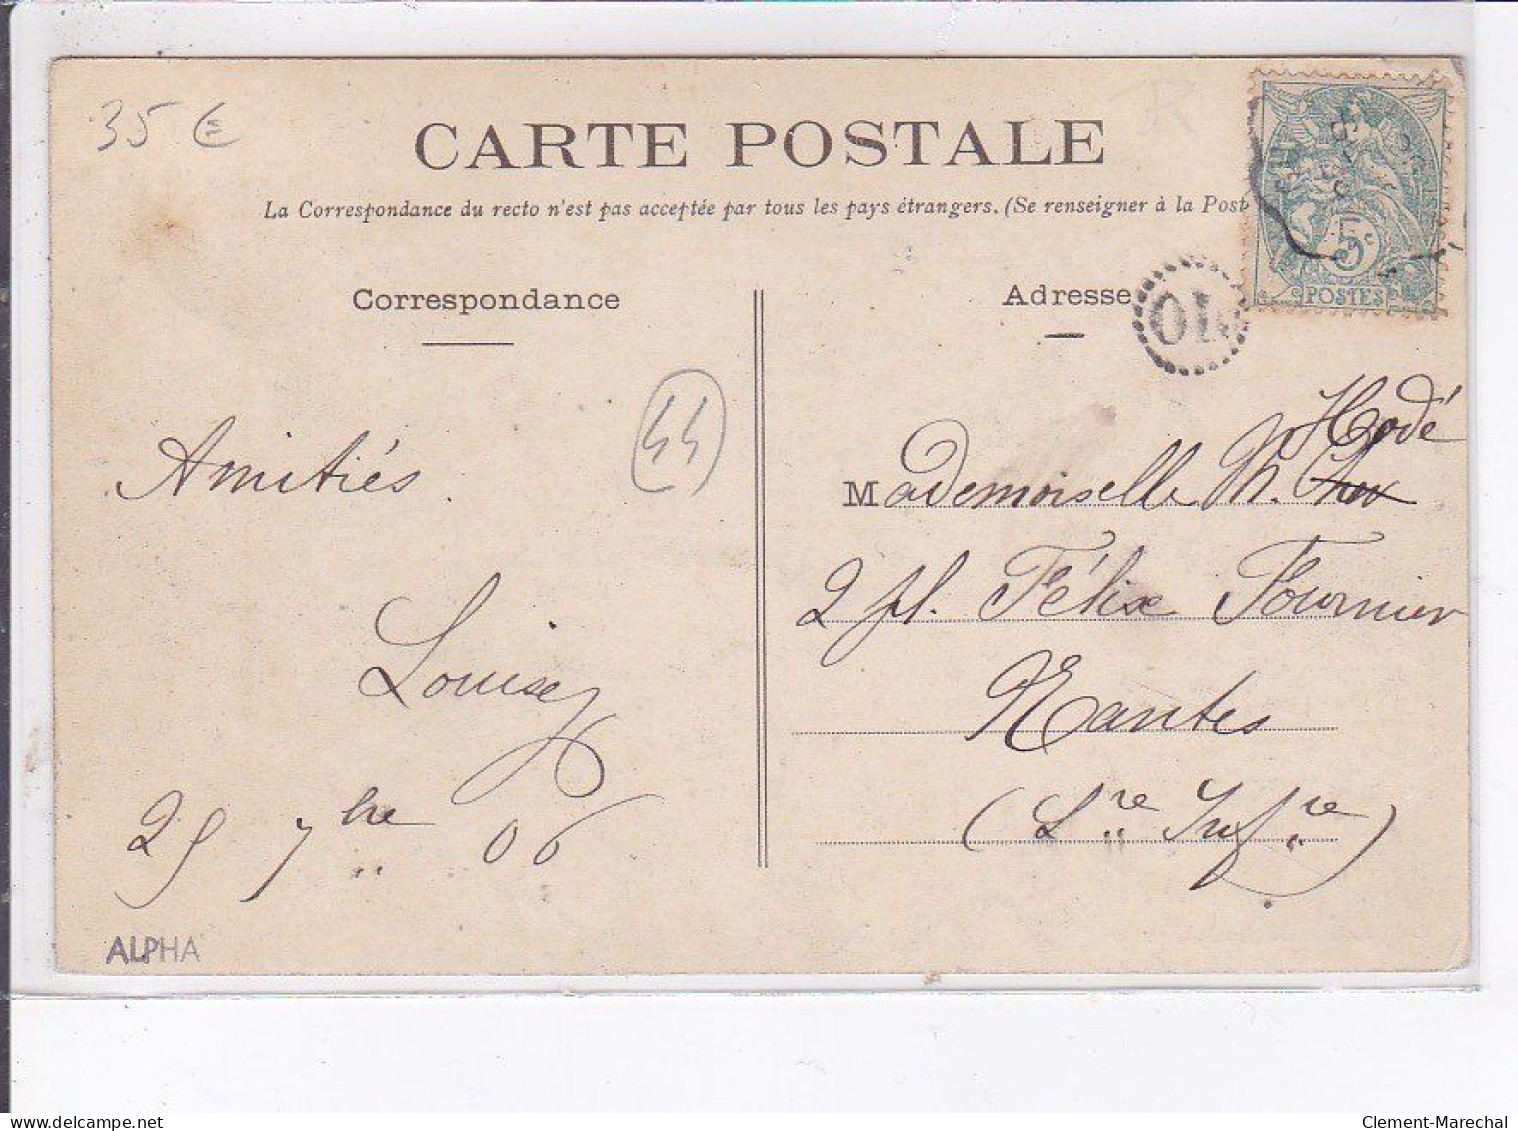 35 €
CARTE POSTALE
La Correspondance du recto n'est pas acceptée par tous les pays étrangers. (Se renseigner à la Post
5c
POSTES
Correspondance
Adresse
OL
44
Amitiés.
Louise
25 7bre 06
Hodé
Mademoiselle M.
2 pl. Félix Fournier
Nantes
(Lre Infre)
ALPHA
delcampe.net
Clement-Marechal